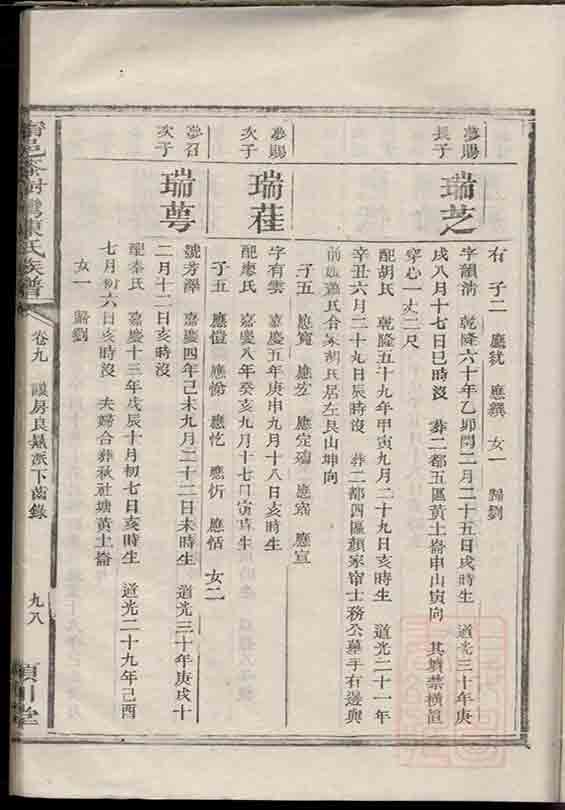 有 子二 應猶 應繏 女一 歸劉
夢賜
長子
瑞芝
字韻清 乾隆六十年乙卯閏二月二十五日戌時生 道光三十年庚
戌八月十七日巳時沒 葬二都五區黃土崙申山寅向 其墳禁橫直
穿心一丈二尺
配胡氏 乾隆五十九年甲寅九月二十九日亥時生 道光二十一年
辛丑六月二十九日辰時沒 葬二都四區顏家帘士務公墓手右邊與
前媲蕭氏合冢胡氏居左艮山坤向
子五 應寬 應宏 應定 應富 應宣
夢賜
次子
瑞蓕
字有雲 嘉慶五年庚申九月十八日亥時生
配廖氏 嘉慶八年癸亥九月十七日寅時生
子五 應愷 應愉 應忔 應忻 應恬 女二
夢召
次子
瑞萼
號芳澤 嘉慶四年己未九月二十二日未時生 道光三十年庚戌十
二月十二日亥時沒
配秦氏 嘉慶十三年戊辰十月初七日亥時生 道光二十九年己酉
七月初六日亥時沒 夫婦合葬秋社塘黃土崙
女一 歸劉
陳氏族譜
卷九 房良 派下齒錄
九八
潁川堂